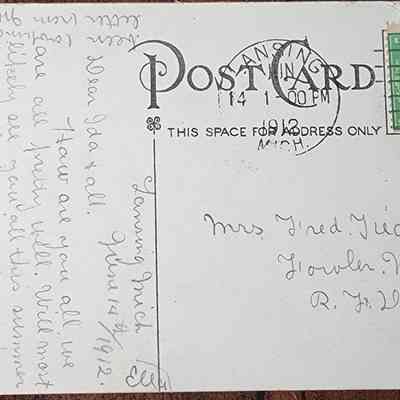 POST CARD
LANSING
JUN
14 1-00 PM
1912
MICH.
THIS SPACE FOR ADDRESS ONLY
Mrs Fred
Fowler
R. F. D
Lansing Mich
June 14th/1912.
Dear Ida & all.
How are you all we
are all pretty well. Will most
likely see you all this summer
been
letter from